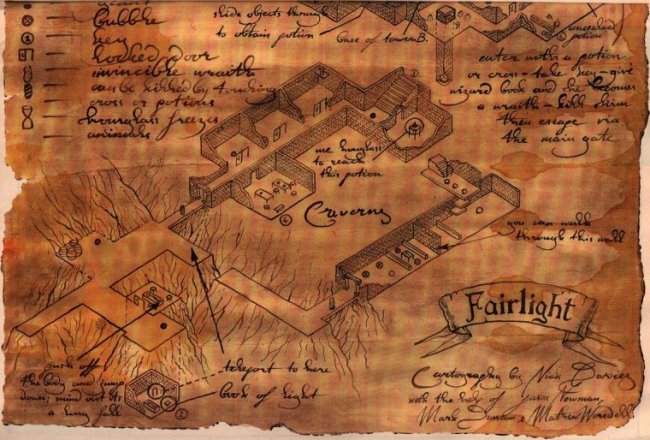 Bubble
key
locked door
invincible wraith
can be killed by touching
cross or potions
hourglass freezes
animals
slide objects through
to obtain potion
base of tower B.
concealed
potion
enter with a potion
or cross - take key - give
wizard book and he becomes
a wraith - kill him
then escape via
the main gate
use hourglass
to reach
this potion
Caverns
you can walk
through this wall
Fairlight
Cartography by Nick Davies
with the help of
Mark Duncan &
push off
the body and jump
down; mind out its
a long fall
teleport to here
book of light